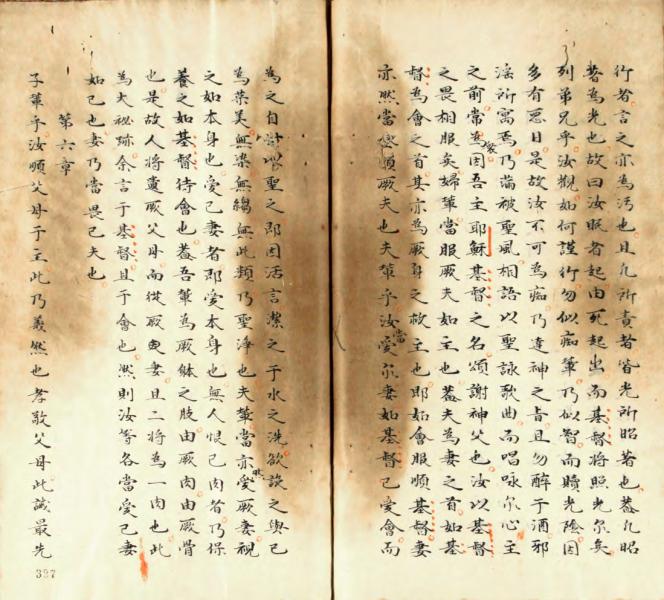 行者言之亦為污也且凡所責者皆光所昭著也蓋凡昭
著為光也故曰汝眠者起由死起出而基督將照光尔矣
列弟兄乎汝觀如何謹行勿似痴輩乃似智而贖光陰因
多有惡日是故汝不可為痴乃達神之旨且勿醉于酒邪
淫所寓焉乃滿被聖風相語以聖詠歌曲而唱咏尔心主
之前常為眾因吾主耶穌基督之名頌謝神父也汝以基督
之畏相服矣婦輩當服厥夫如主也蓋夫為妻之首如基
督為會之首其亦為厥身之救主也即如會服順基督妻
亦然當變順厥夫也夫輩乎汝當愛尔妻如基督已愛會而
為之自付以聖之即因活言潔之于水之洗欲談之與己
為榮美無染無縐無此類乃聖淨也夫輩當亦然愛厥妻視
之如本身也愛己妻者即愛本身也無人恨己肉者乃保
養之如基督待會也蓋吾輩為厥體之肢由厥肉由厥骨
也是故人將棄厥父母而從厥妻且二將為一肉也此
為大秘跡余言于基督且于會也然則汝等各當愛己妻
如己也妻乃當畏己夫也
第六章
子輩乎汝順父母于主此乃義然也孝敬父母此誡最先
397